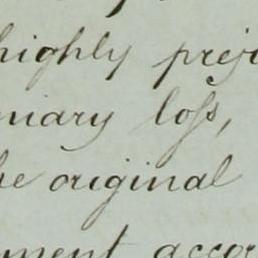 highly prej
niary loſs,
he original
ment accor